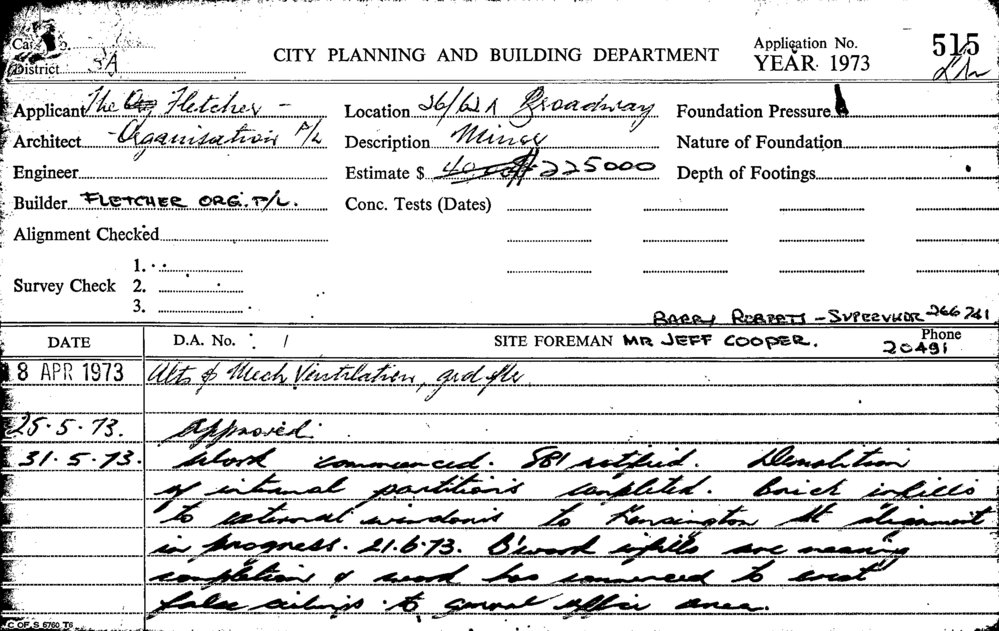 Card No.
District 3A
CITY PLANNING AND BUILDING DEPARTMENT
Application No.
YEAR 1973
515
Applicant The Fletcher -
Location 26/62A Broadway
Foundation Pressure
Architect - Organisation P/L
Description Minor
Nature of Foundation
Engineer
Estimate $ 225000
Depth of Footings
Builder FLETCHER ORG. P/L.
Conc. Tests (Dates)
Alignment Checked
Survey Check
1.
2.
3.
BARRY ROBERTS - SUPERVISOR 266 741
DATE
D.A. No. /
SITE FOREMAN MR JEFF COOPER.
Phone
20491
18 APR 1973 Alts & Mech Ventilation, grd flr
25.5.73. Approved.
31.5.73. Work commenced. SBI notified. Demolition
of internal partitions completed. Brick infills
to external windows to Kensington St alignment
in progress. 21.6.73. B'work infills are nearing
completion & work has commenced to erect
false ceilings to general office area.
C OF S 6760 T6